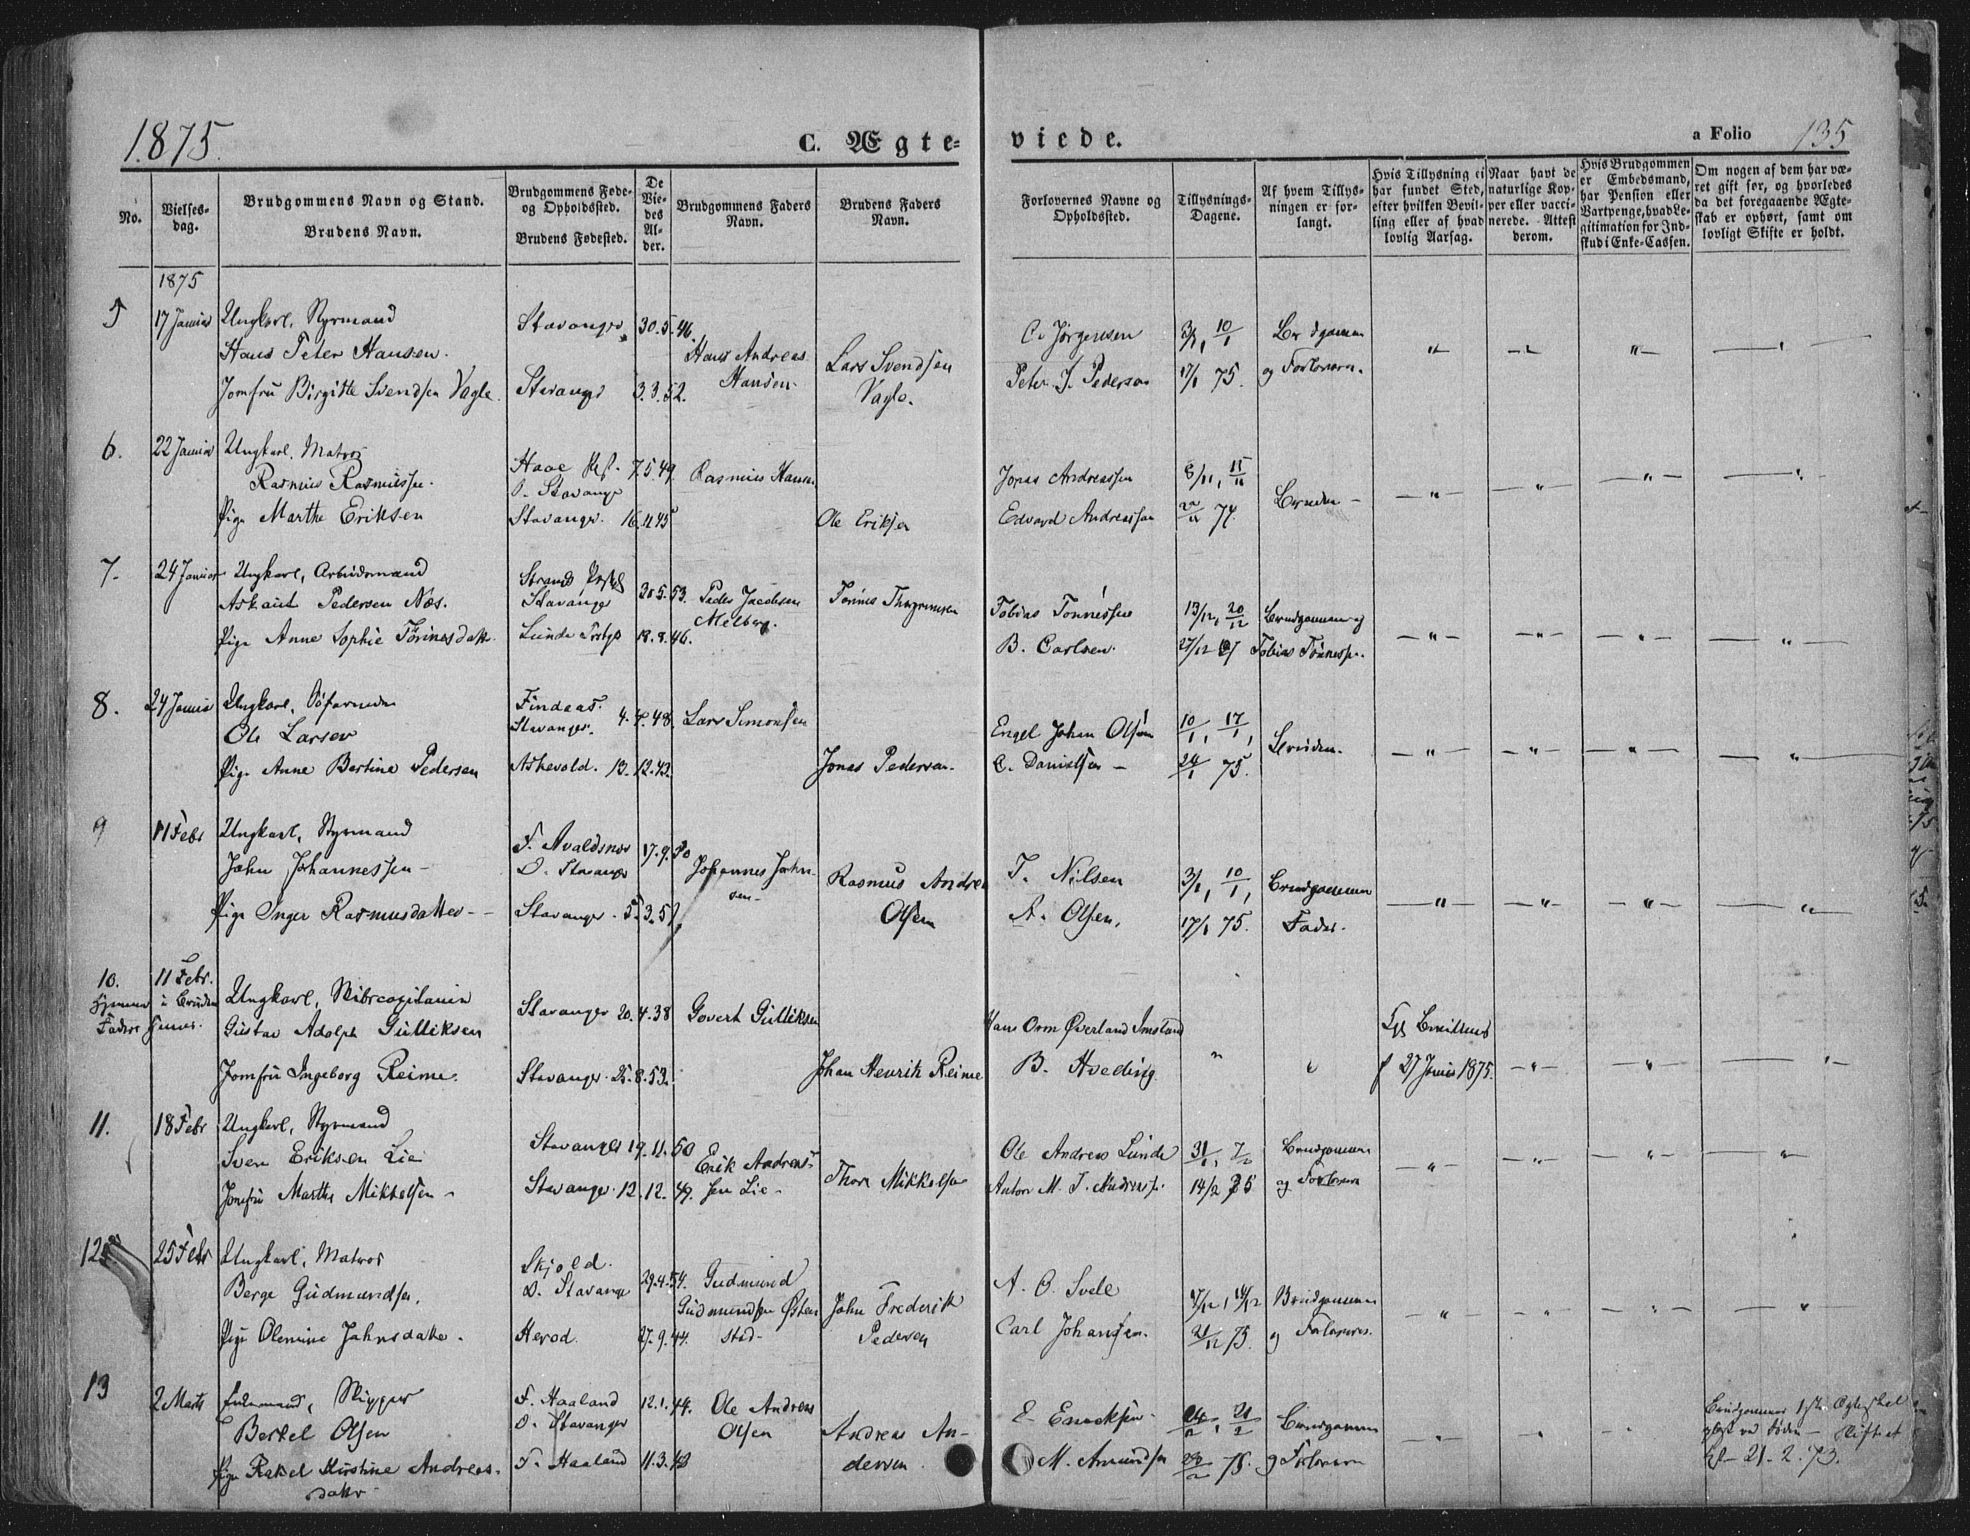 1875.
C. Ægte-
viede.
a Folio 135
No.
Vielses-
dag.
Brudgommens Navn og Stand.
Brudens Navn.
Brudgommens Føde-
og Opholdssted.
Brudens Fødested.
De
Vie-
des
Al-
der.
Brudgommens Faders
Navn.
Brudens Faders
Navn.
Forlovernes Navne og
Opholdssted.
Tillysnings-
Dagene.
Af hvem Tillys-
ningen er for-
langt.
Hvis Tillysning ei
har fundet Sted,
efter hvilken Bevil-
ling eller af hvad
lovlig Aarsag.
Naar havt de
naturlige Kop-
per eller vacci-
nerede. Attest
derom.
Hvis Brudgommen
er Embedsmand,
har Pension eller
Vartpenge, hvad Le-
gitimation for Ind-
skud i Enke-Cassen.
Om nogen af dem har væ-
ret gift før, og hvorledes
da det foregaaende Ægte-
skab er ophørt, samt om
lovligt Skifte er holdt.
1875
5 17 Januar Ungkarl, Styrmand Stavanger 30.5.46.
Hans Peter Hansen. Hans Andreas Hansen
Jomfru Birgitte Svendsen Vagle. Stavanger 3.3.52. Lars Svendsen Vagle.
C. Jørgensen 3/1, 10/1
Peter J. Pedersen 17/1 75. og Forloveren.
6. 22 Januar Ungkarl, Matros
Rasmus Rasmussen. O. Stavanger 7.5.49. Rasmus Hansen
Pige Marthe Eriksen Stavanger. 16.11.45 Ole Eriksen
Jonas Andreassen 8/11, 15/11
Edvard Andreassen 22/11 74. Bruden
7. 24 Januar Ungkarl, Arbeidsmand Strands
Pedersen Næs. Stavanger 30.5.53. Peder Jacobsen Melberg.
Pige Anne Sophie Tønnesdatter Lunde 18.8.46. Tønnes
Tobias Tønnessen 13/12, 20/12 Brudgommen og
B. Carlsen. 27/12 Tobias Tønnessen.
8. 24 Januar Ungkarl, Søfarende Findaas.
Ole Larsen Stavanger. 4.4.48. Lars Simonsen
Pige Anne Bertine Pedersen Askevold. 13.12.43. Jonas Pedersen.
Engel Johan Olsen 10/1, 17/1,
C. Danielsen 24/1 75. Bruden.
9 11 Febr Ungkarl, Styrmand F. Avaldsnes
John Johannessen O. Stavanger 17.9.50 Johannes Johnsen
Pige Inger Rasmusdatter Stavanger. 5.3.51 Rasmus Andreas Olsen
T. Nilsen 3/1, 10/1, Brudgommen
A. Olsen. 17/1 75. Fader.
10. 11 Febr. Ungkarl, Skibscapitain
Gustav Adolph Gulliksen Stavanger 20.4.38 Govert Gulliksen
i Brudens Faders Huus.
Jomfru Ingeborg Reime. Stavanger. 25.8.53. Johan Henrik Reime
Hans Orm Øverland Imsland
B. Hveding. 27 Januar 1875.
11. 18 Febr Ungkarl, Styrmand
Sven Eriksen Lie Stavanger 19.11.50 Erik Andreassen Lie
Jomfru Marthe Mikkelsen Stavanger. 12.12.49. Thore Mikkelsen
Ole Andreas Lunde 31/1, 7/2 Brudgommen
Anton M. T. 14/2 75 og Forlovere
12. 25 Febr Ungkarl, Matros Skjold.
Berge Gudmundsen. O. Stavanger 29.4.54. Gudmund Gudmundsen Østenstad
Pige Olemine Johnsdatter. Herod. 27.9.44. John Frederik Pedersen
A. O. Svele Brudgommen
Carl Johansen. 75. og Forlovere.
13 2 Marts Enkemand, Skipper F. Haaland 12.1.44. Ole Andreas Olsen
Bertel Olsen O. Stavanger
Pige Rakel Kirstine Andreasdatter F. Haaland 11.3.43 Andreas Andersen
E. Ericksen 21/2 Brudgommen
M. Amundsen 28/2 75. og Forlovere
Brudgommens 1ste Ægteskab
opløst ved Døden - Skiftet
21.2.73.